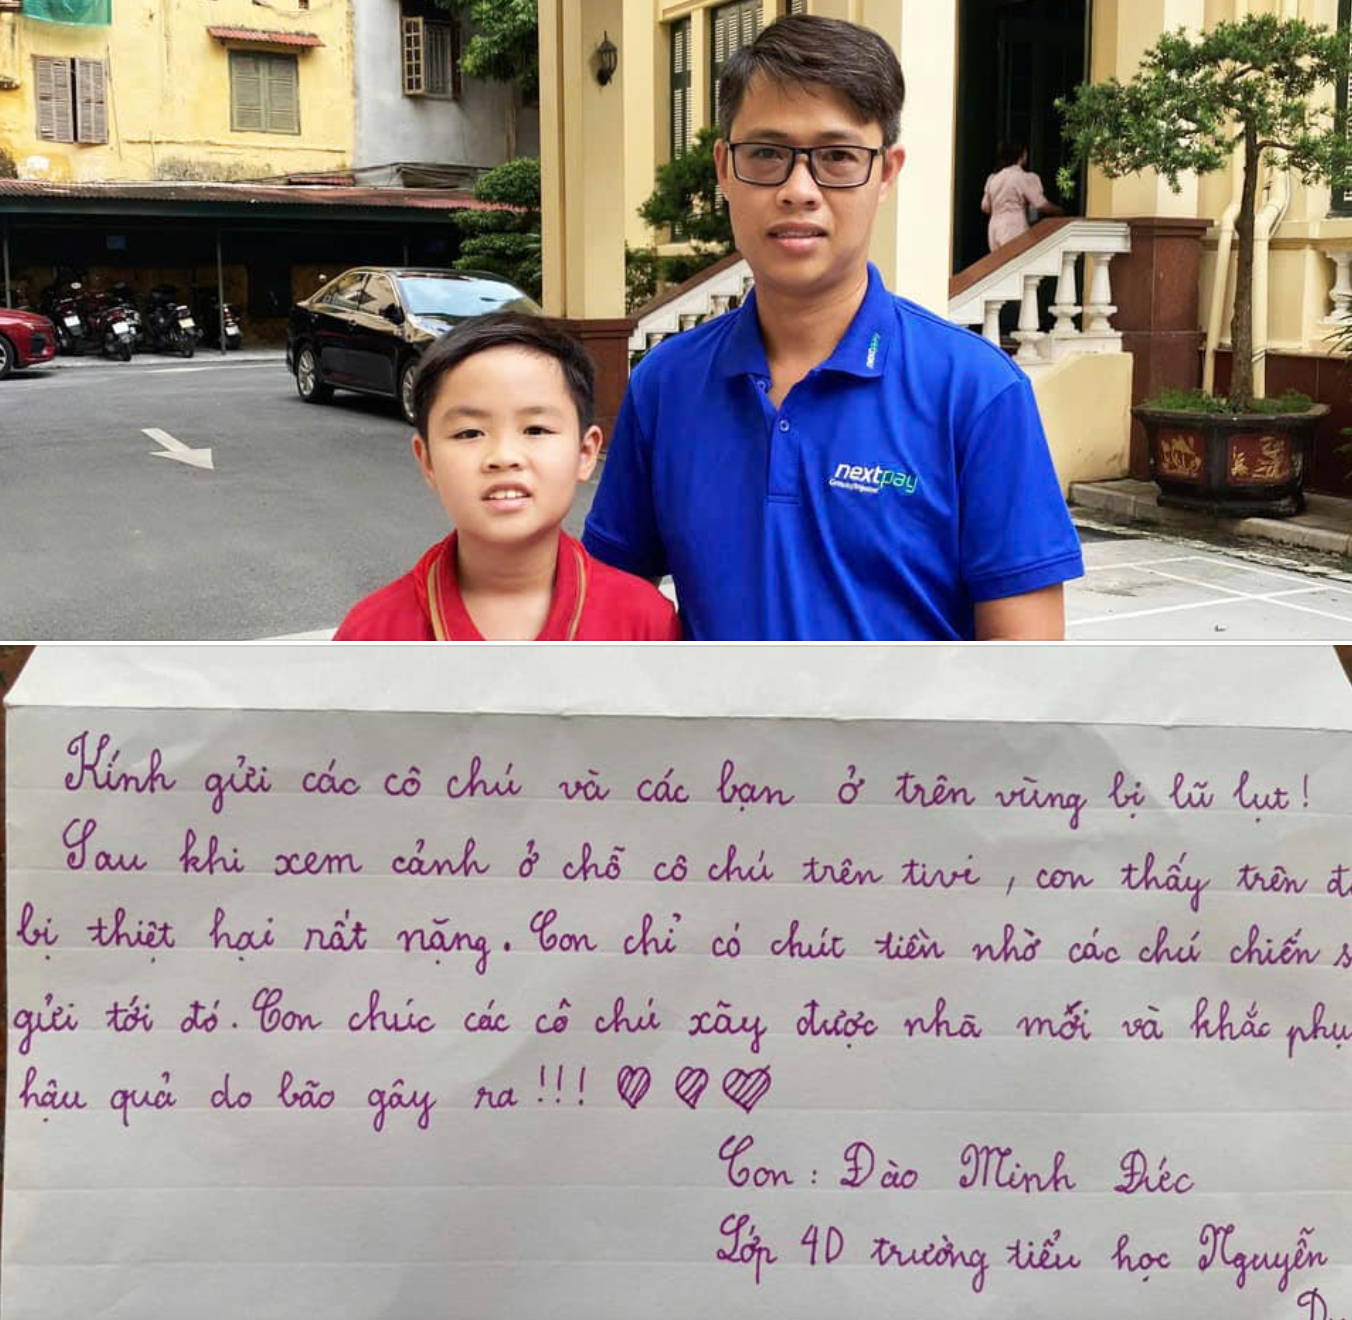 nextpay
nextpay
Kính gửi các cô chú và các bạn ở trên vùng bị lũ lụt!
Sau khi xem cảnh ở chỗ cô chú trên tivi, con thấy trên
bị thiệt hại rất nặng. Con chỉ có chút tiền nhờ các chú chiến
gửi tới đó. Con chúc các cô chú xây được nhà mới và khắc
hậu quả do bão gây ra!!!
Con: Đào Minh Đức
Lớp 4D trường tiểu học Nguyễn